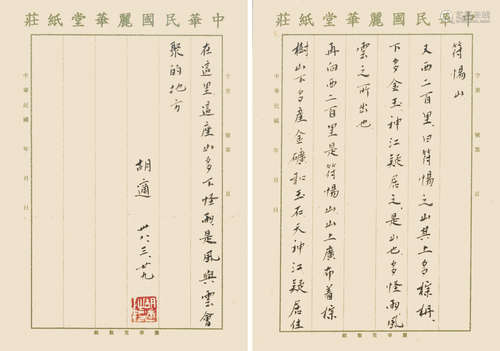 中華民國麗華堂紙莊
符惕山
又西二百里曰符惕之山其上多棕枬
下多金玉神江疑居之是山也多怪雨風
雲之所出也
再向西二百里是符惕山山上廣布着棕
樹山下多產金礦和玉石天神江疑居住
中華民國 年 月 日
中華民國麗華堂紙莊
在這里這座山多下怪雨是風與雲會
聚的地方
胡適 卅八、三、廿九
中華民國 年 月 日